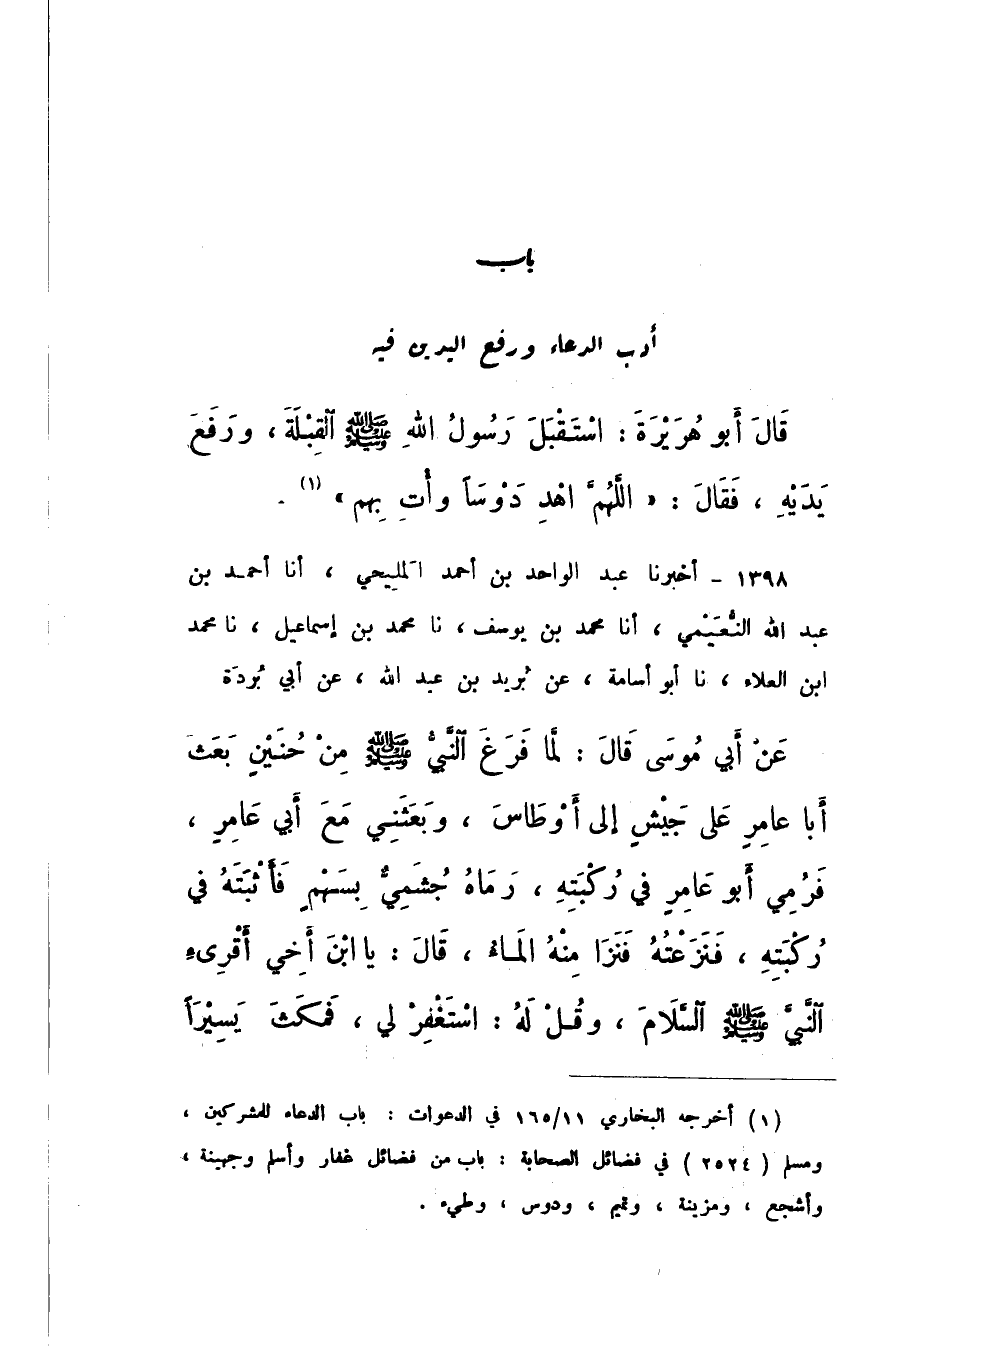 باب
أدب الدعاء ورفع اليدين فيه
قَالَ أَبو هُرَيْرَةَ : اسْتَقْبَلَ رَسُولُ اللهِ ﷺ ٱلْقِبْلَةَ ، ورَفَعَ
يَدَيْهِ ، فَقَالَ : « اللَّهُمَّ اهْدِ دَوْسَاً وأْتِ بِهم » (١) .
١٣٩٨ – أخبرنا عبد الواحد بن أحمد المَلِيحي ، أنا أحمـد بن
عبد الله النُّعَيْمي ، أنا محمد بن يوسف ، نا محمد بن إسماعيل ، نا محمد
ابن العلاء ، نا أبو أسامة ، عن بُريد بن عبد الله ، عن أبي بُردَة
عَنْ أَبي مُوسَى قَالَ : لَمَّا فَرَغَ ٱلنَّبيُّ ﷺ مِنْ حُنَيْنٍ بَعَثَ
أَبا عامِرٍ عَلى جَيْشٍ إلى أَوْطَاسَ ، وبَعَثَنِـي مَعَ أَبي عَامِرٍ ،
فَرُمِي أَبو عَامِرٍ في رُكْبَتِهِ ، رَمَاهُ جُشَمِيٌّ بِسَهْمٍ فَأَثْبَتَهُ في
رُكْبَتِهِ ، فَنَزَعْتُهُ فَنَزَا مِنْهُ الْمَـاءُ ، قَالَ : يا ابْنَ أَخِي أَقْرِىءِ
ٱلنَّبيَّ ﷺ ٱلسَّلَامَ ، وقُـلْ لَهُ : اسْتَغْفِرْ لي ، فَمكَثَ يَسِيْرَاً
(١) أخرجه البخاري ١٦٥/١١ في الدعوات : باب الدعاء للمشركين ،
ومسلم ( ٢٥٢٤ ) في فضائل الصحابة : باب من فضائل غفار وأسلم وجهينة ،
وأشجع ، ومزينة ، وتميم ، ودوس ، وطيء .